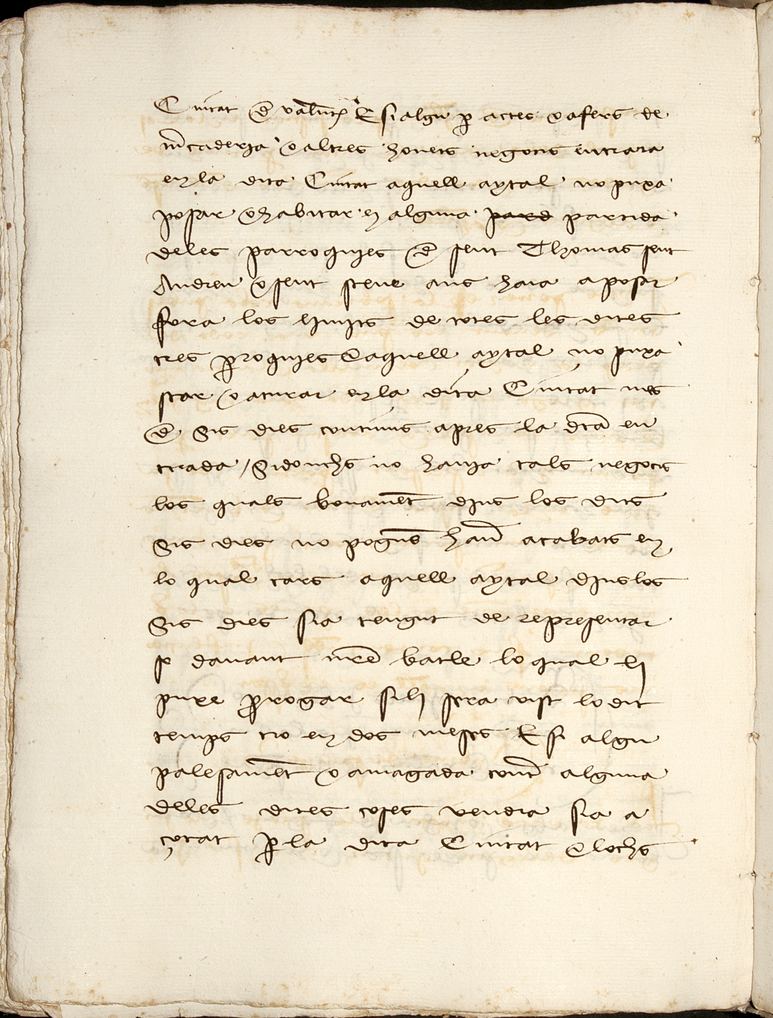 Ciutat de valentª E si algu p actes o afers de
mcaderia o altres honets negocis entrara
en la dita Ciutat aquell aytal no puxa
posar o habitar en alguna pard partida
deles parroquies de sent Thomas sent
Andreu o sent steue ans haia a posar
fora los limits de totes les dites
tres proquies E aquell aytal no puxa
star o aturar en la dita Ciutat mes
de sis dies continus apres la dta en
trada / Sidonchs no hauia tals negocis
los quals bonament dins los dits
sis dies no pogues hauer acabats en
lo qual cars aquell aytal dins los
sis dies sia tengut de representar
se dauant nre batle lo qual li
puxe prrogar si li sera vist lo dit
temps tro en dos meses E si algu
palesament o amagada cont alguna
deles dites coses vendra sia a
çotat p la dita Ciutat e lochs